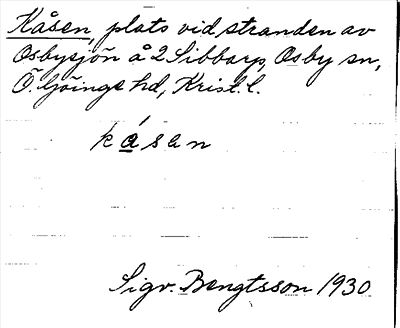 Kåsen, plats vid stranden av
Osbysjön å 2 Sibbarp, Osby sn,
Ö. Göinge hd, Krist. l.
kåsen
Sigv. Bengtsson 1930